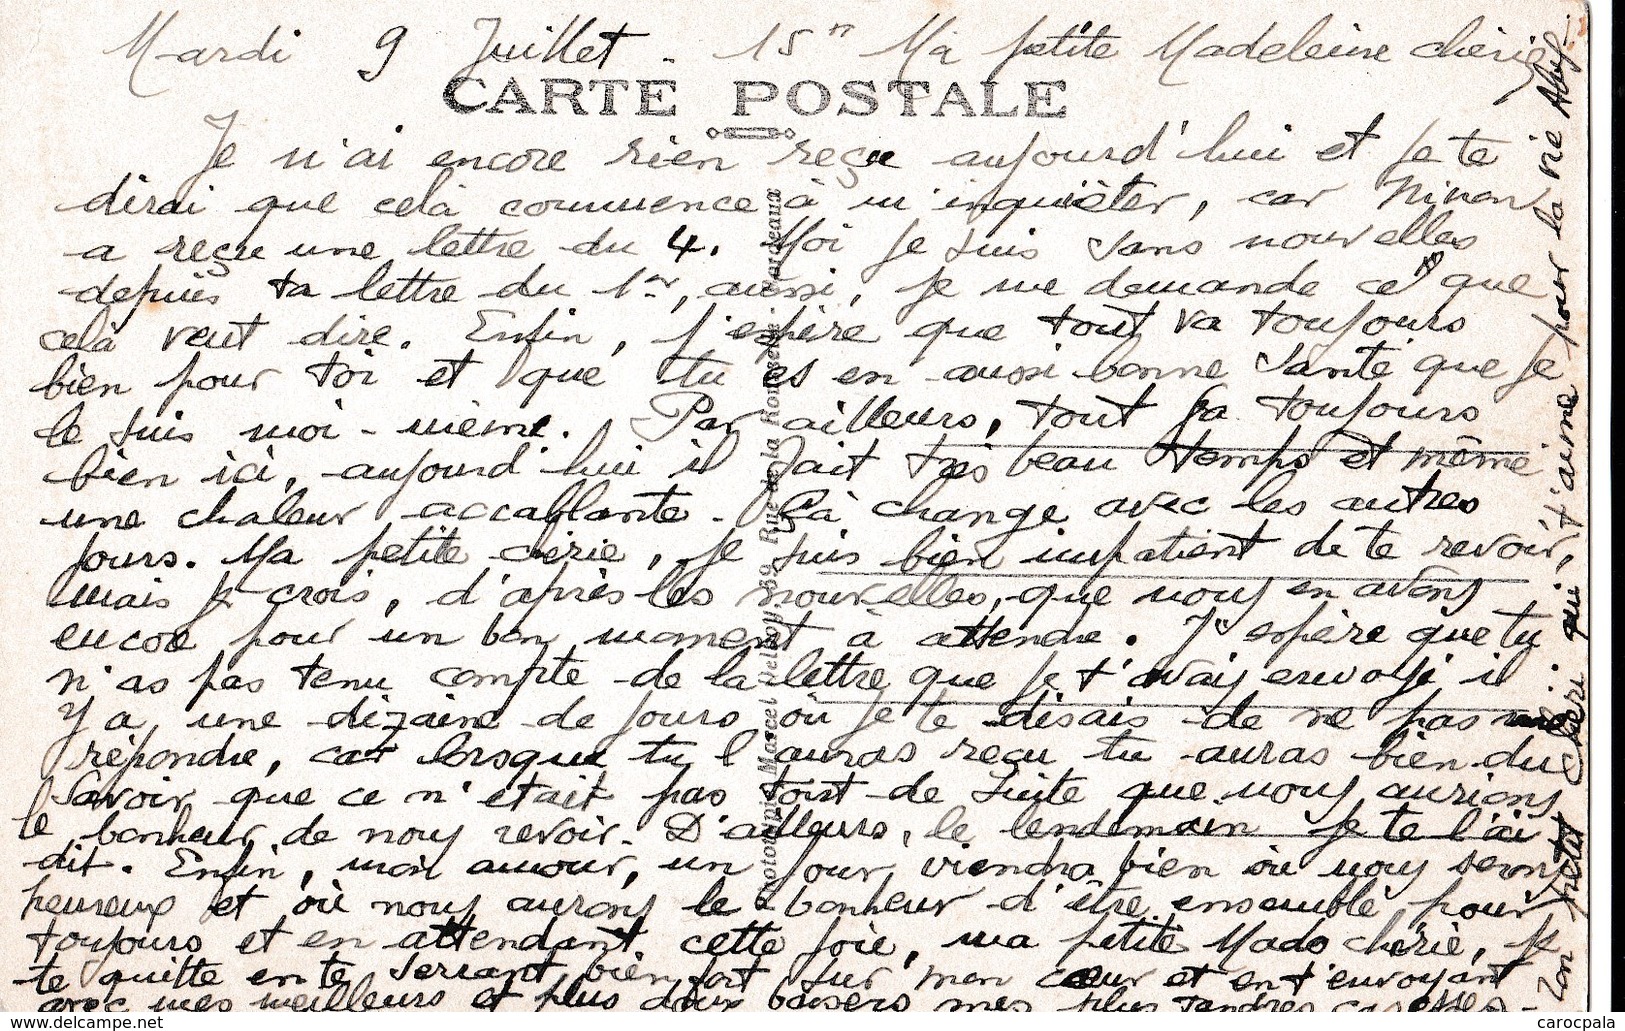 Mardi 9 Juillet - 15 h Ma petite Madeleine chérie
CARTE POSTALE
Je n'ai encore rien reçu aujourd'hui et je te
dirai que celà commence à m'inquièter, car Ninon
a reçu une lettre du 4. Moi je suis sans nouvelles
depuis ta lettre du 1er, aussi, je me demande ce que
celà veut dire. Enfin, j'espère que tout va toujours
bien pour toi et que tu es en aussi bonne santé que je
le suis moi-même. Par ailleurs, tout va toujours
bien ici, aujourd'hui il fait très beau temps et même
une chaleur accablante. Çà change avec les autres
jours. Ma petite chérie, je suis bien impatient de te revoir,
mais je crois, d'après les nouvelles, que nous en avons
encore pour un bon moment à attendre. J'espère que tu
n'as pas tenu compte de la lettre que je t'avais envoyé il
y a une dizaine de jours où je te disais de ne pas me
répondre, car lorsque tu l'auras reçu tu auras bien du
savoir que ce n'était pas tout de suite que nous aurions
le bonheur de nous revoir. D'ailleurs, le lendemain je te l'ai
dit. Enfin, mon amour, un jour viendra bien où nous serons
heureux et où nous aurons le bonheur d'être ensemble pour
toujours et en attendant cette joie, ma petite Mado chérie, je
te quitte en te serrant bien fort sur mon cœur et en t'envoyant
avec mes meilleurs et plus doux baisers mes plus tendres caresses -
Ton chéri qui t'aime pour la vie
Phototypie Marcel Delboy, 39, Rue de la Rousselle - Bordeaux
carocpala